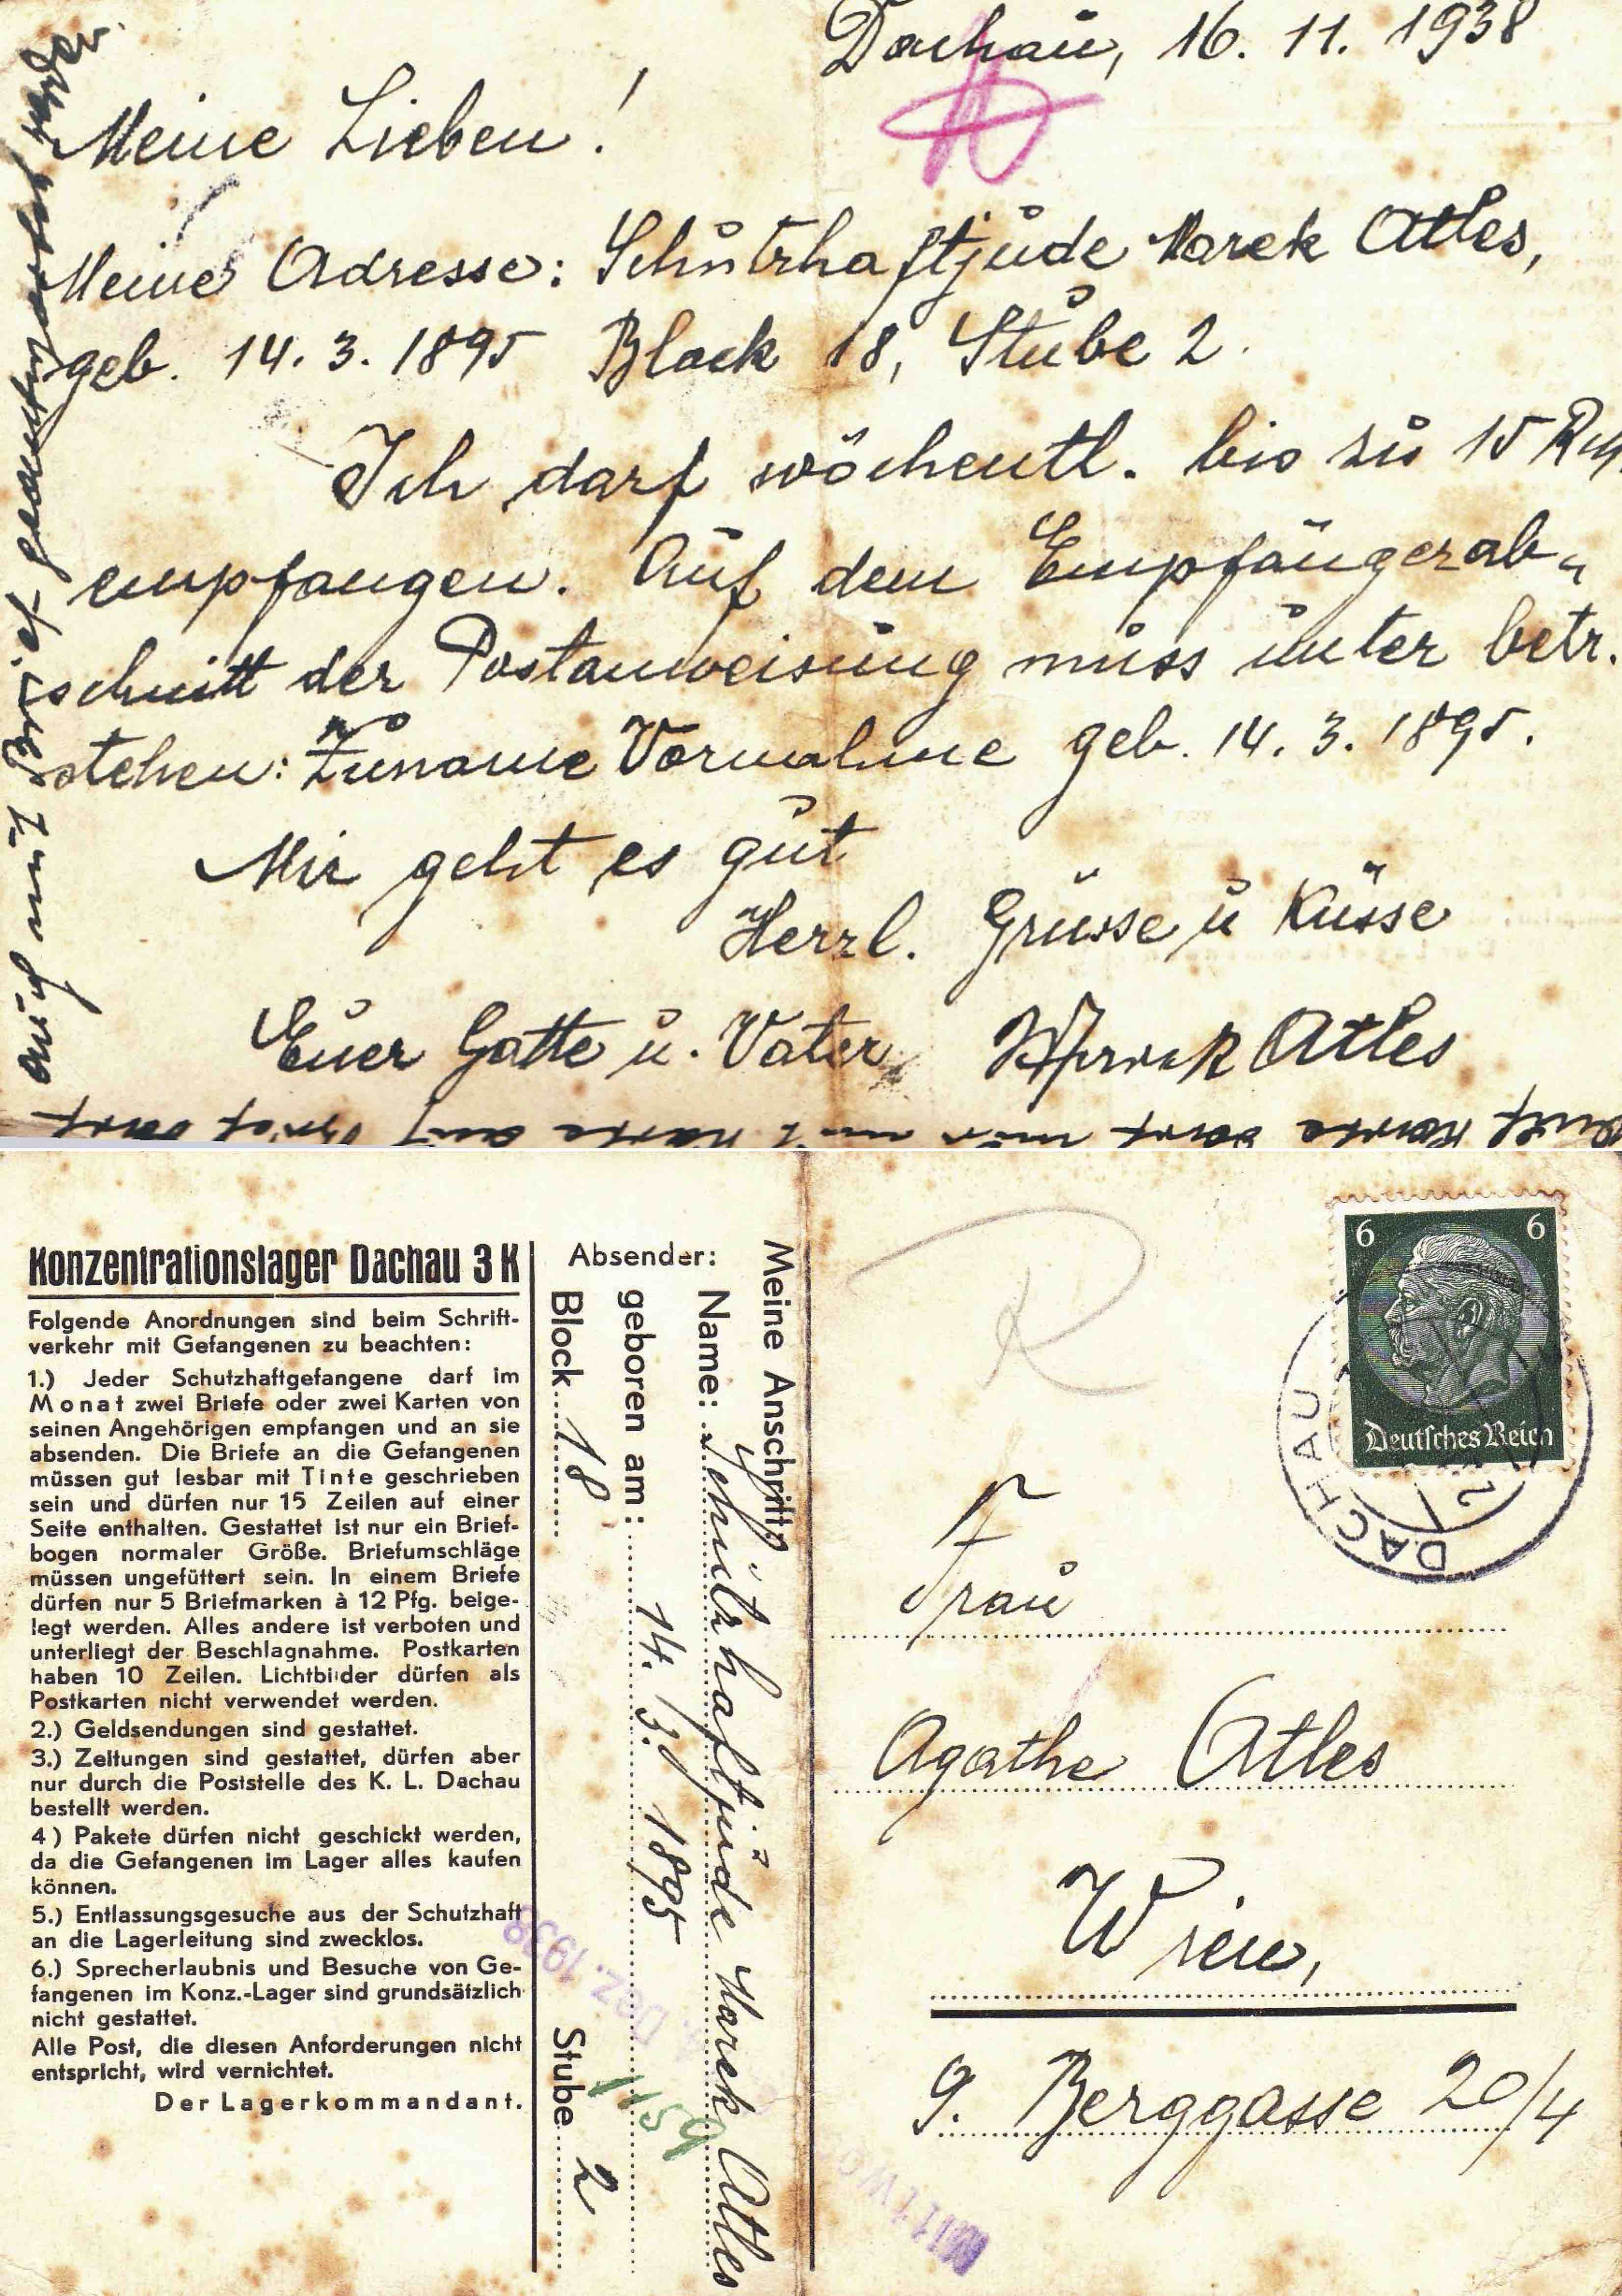 Dachau, 16. 11. 1938
Meine Lieben!
Meine Adresse: Schutzhaftjude Marek Atles,
geb. 14. 3. 1895 Block 18, Stube 2.
Ich darf wöchentl. bis zu 15 RM
empfangen. Auf dem Empfängerab-
schnitt der Postanweisung muss unter betr.
stehen: Zuname Vornahme geb. 14. 3. 1895.
Mir geht es gut
Herzl. Grüsse u Küsse
Euer Gatte u. Vater Marek Atles
Karte darf nur mit Karte auf Brief darf
auch mit Brief geantwortet werden.
Konzentrationslager Dachau 3 K
Folgende Anordnungen sind beim Schrift-
verkehr mit Gefangenen zu beachten:
1.) Jeder Schutzhaftgefangene darf im
Monat zwei Briefe oder zwei Karten von
seinen Angehörigen empfangen und an sie
absenden. Die Briefe an die Gefangenen
müssen gut lesbar mit Tinte geschrieben
sein und dürfen nur 15 Zeilen auf einer
Seite enthalten. Gestattet ist nur ein Brief-
bogen normaler Größe. Briefumschläge
müssen ungefüttert sein. In einem Briefe
dürfen nur 5 Briefmarken à 12 Pfg. beige-
legt werden. Alles andere ist verboten und
unterliegt der Beschlagnahme. Postkarten
haben 10 Zeilen. Lichtbilder dürfen als
Postkarten nicht verwendet werden.
2.) Geldsendungen sind gestattet.
3.) Zeitungen sind gestattet, dürfen aber
nur durch die Poststelle des K. L. Dachau
bestellt werden.
4) Pakete dürfen nicht geschickt werden,
da die Gefangenen im Lager alles kaufen
können.
5.) Entlassungsgesuche aus der Schutzhaft
an die Lagerleitung sind zwecklos.
6.) Sprecherlaubnis und Besuche von Ge-
fangenen im Konz.-Lager sind grundsätzlich
nicht gestattet.
Alle Post, die diesen Anforderungen nicht
entspricht, wird vernichtet.
Der Lagerkommandant.
Absender:
Meine Anschrift:
Name: Schutzhaftjude Marek Atles
geboren am: 14. 3. 1895
Block 18 Stube 2
Dez. 1938
1159
R
6 6
Deutsches Reich
DACHAU
Frau
Agathe Atles
Wien,
9. Berggasse 20/4